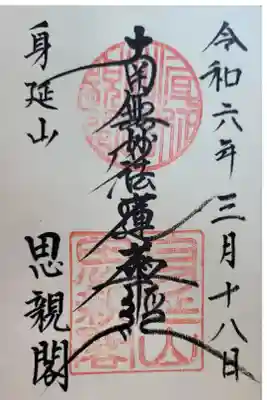 令和六年三月十八日
南無妙法蓮華経
身延山
思親閣